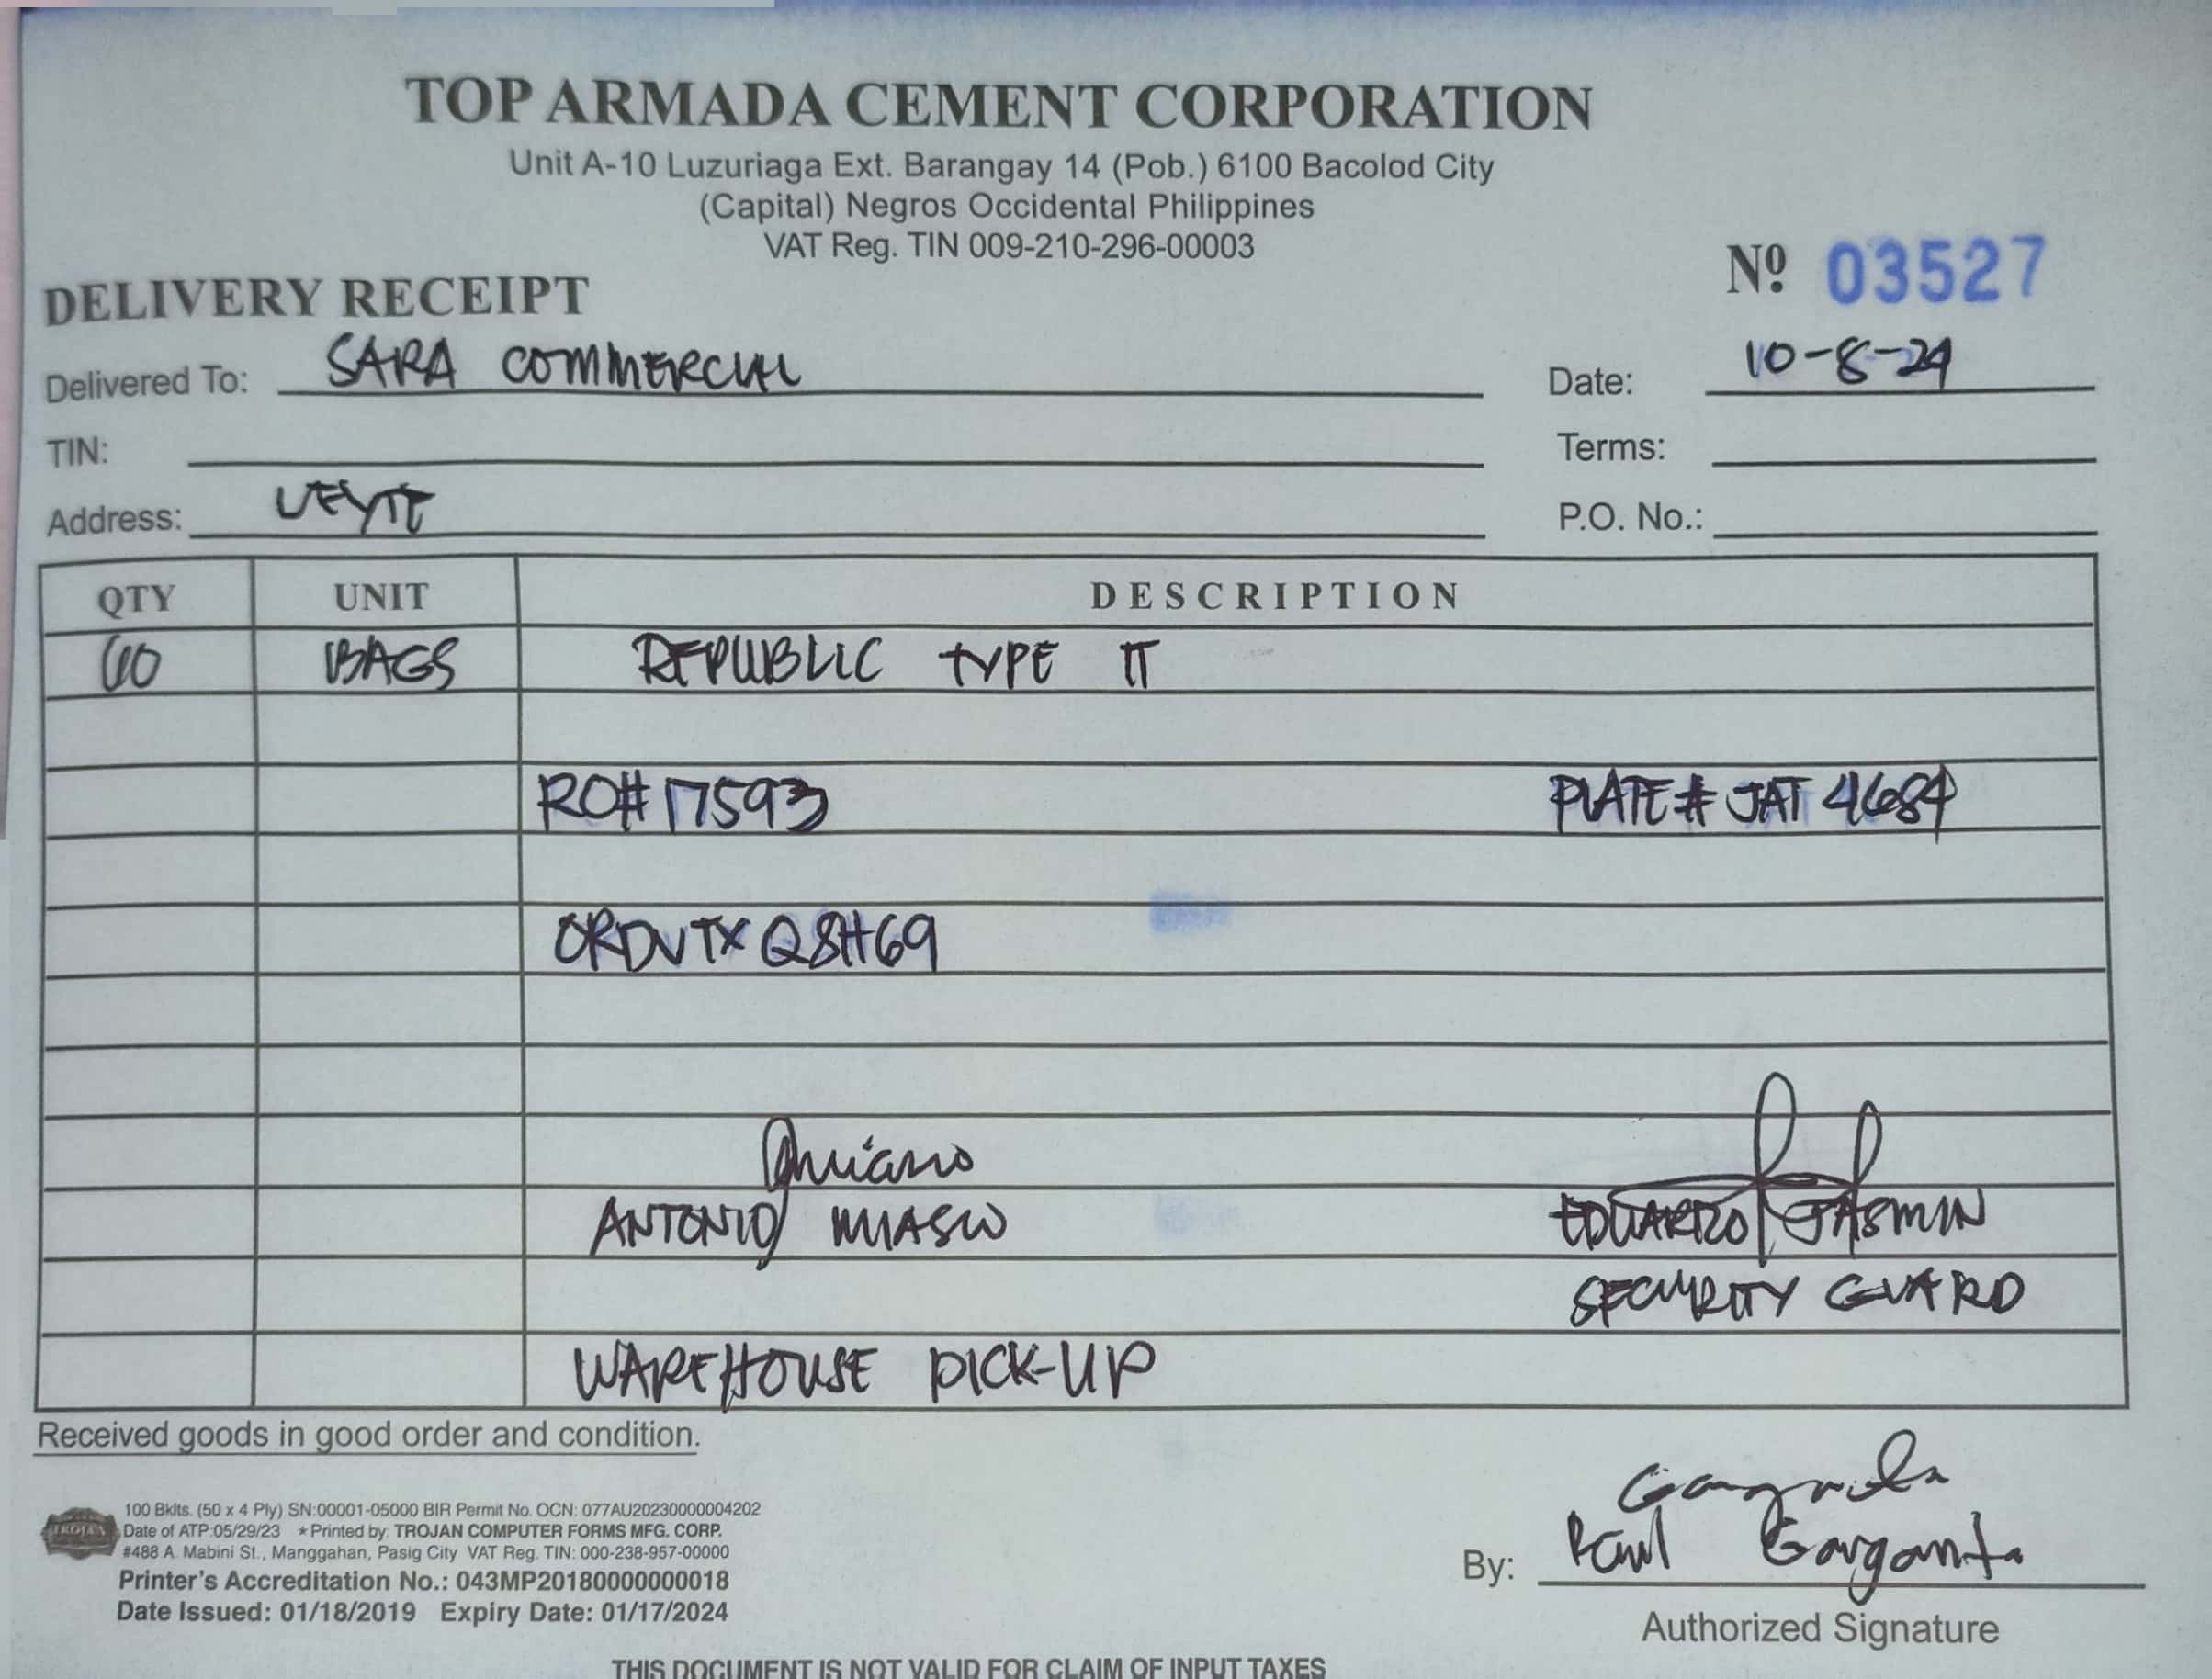 TOP ARMADA CEMENT CORPORATION
Unit A-10 Luzuriaga Ext. Barangay 14 (Pob.) 6100 Bacolod City
(Capital) Negros Occidental Philippines
VAT Reg. TIN 009-210-296-00003
Nº 03527
DELIVERY RECEIPT
Delivered To: SARA COMMERCIAL
Date: 10-8-24
TIN:
Terms:
Address: LEYTE
P.O. No.:
QTY UNIT DESCRIPTION
60 BAGS REPUBLIC TYPE II
RO# 17593 PLATE # JAT 4684
ORDVTXQ8H69
ANTONIO EDUARDO JASMIN
SECURITY GUARD
WAREHOUSE PICK-UP
Received goods in good order and condition.
100 Bklts. (50 x 4 Ply) SN:00001-05000 BIR Permit No. OCN: 077AU20230000004202
TROJAN Date of ATP:05/29/23 ★Printed by: TROJAN COMPUTER FORMS MFG. CORP.
#488 A. Mabini St., Manggahan, Pasig City VAT Reg. TIN: 000-238-957-00000
Printer's Accreditation No.: 043MP20180000000018
Date Issued: 01/18/2019 Expiry Date: 01/17/2024
By: Paul Garganta
Authorized Signature
THIS DOCUMENT IS NOT VALID FOR CLAIM OF INPUT TAXES